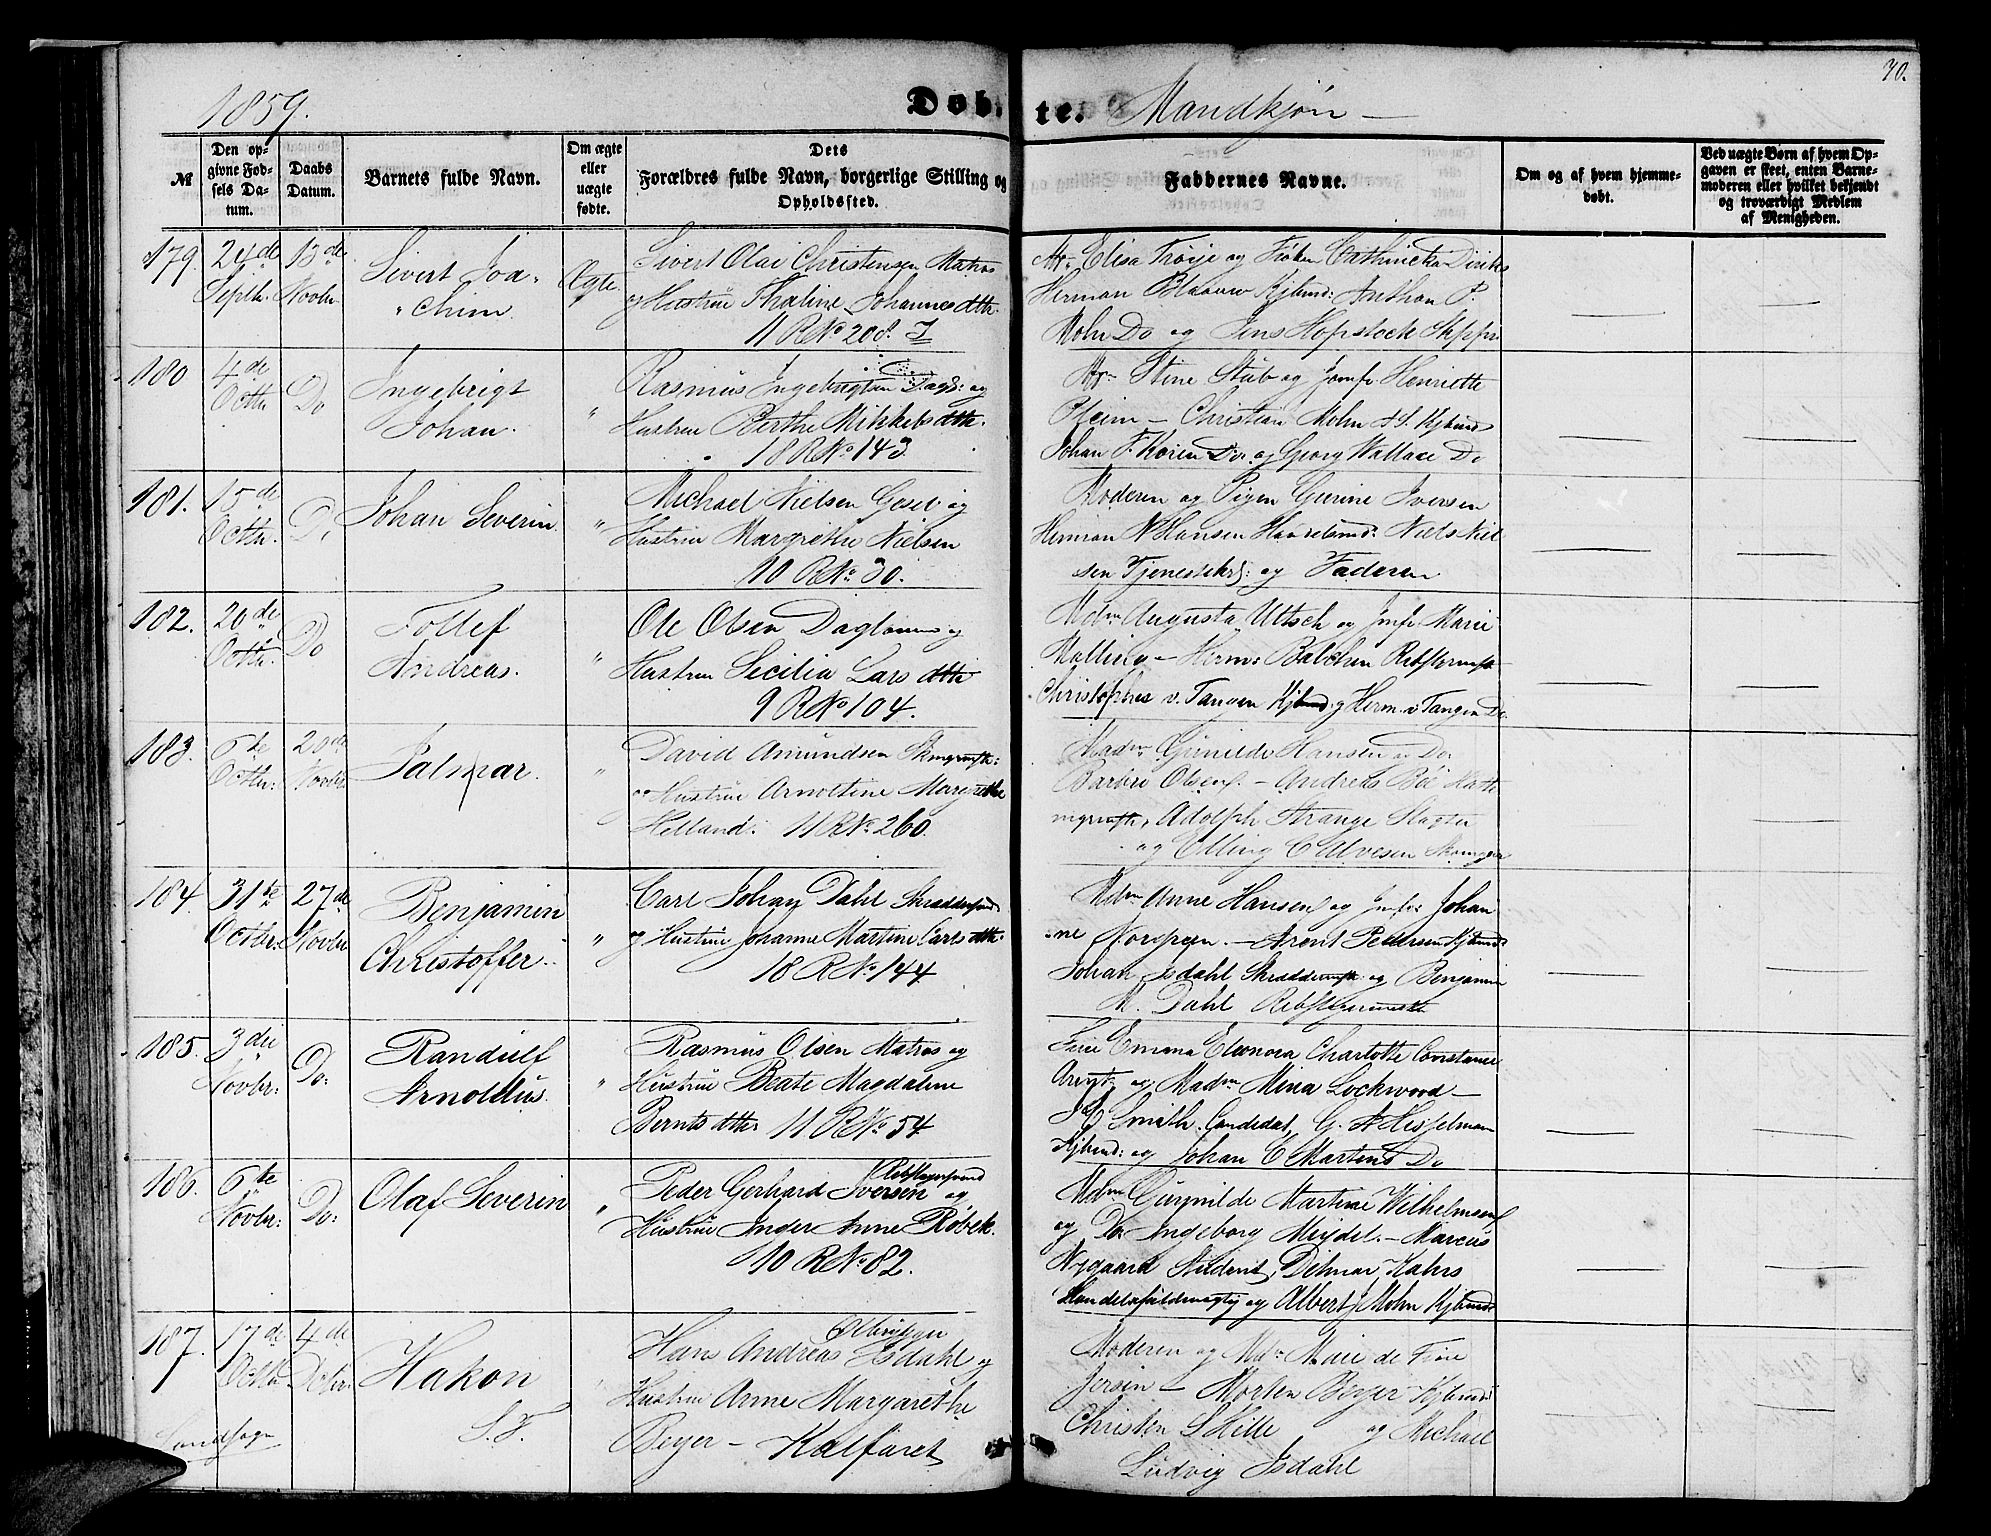 70.
1859.
Døb. te. Mandkjøn
№
Den opgivne Fødsels Datum.
Daabs Datum.
Barnets fulde Navn.
Om ægte eller uægte fødte.
Dets Forældres fulde Navn, borgerlige Stilling og Opholdssted.
Faddernes Navne.
Om og af hvem hjemmedøbt.
Ved uægte Børn af hvem Opgaven er skeet, enten Barnemoderen eller hvilket bekjendt og troværdigt Medlem af Menigheden.
179. 24de Septbr. 13de Novbr
Sivert Joachim
Ægte
Sivert Olai Christensen Matros
og Hustrue Thaline Johannesdttr.
11 R No 208.
Elisa Trøije og Frøken Cathinka Diriks
Herman Blaauw Kjbmd: Anthon P.
Mohn Do og Jens Hopstock Skipper
180 4de Octbr Do
Ingebrigt Johan.
"
Rasmus Ingebrigtsen Dagl: og
Hustrue Berthe Mikkelsdttr.
18 R No 143
Stine Stub og Jomfr Henriette
Pleim – Christian Mohn Kjbmd
Johan F. Koren Do. og Georg Wallace Do
181. 15de Octbr. Do
Johan Severin.
"
Michael Nielsen Gesel og
Hustrue Margrethe Nielsen
10 R No 30.
Moderen og Pigen Gurine Iversen
Hemran N Hansen Handelsmd: Niels Nielsen
Tjenestekrl: og Faderen
182. 20de Octbr. Do
Tollef Andreas.
"
Ole Olsen Daglønner og
Hustrue Sicilia Larsdttr
9 R No 104.
Mdm Augusta Ultsch og Jmfr Marie
Malling – Herm: Balchen Rebslermstr
Christopher v. Tangen Kjbmd og Herm. v Tangen Do
183. 6te Octbr: 20de Novbr
Jalmar.
"
David Amundsen Skomgrmstr:
og Hustrue Arnoltine Margrethe
Helland. 11 R No 260.
Madm Gunilde Hansen og Do
Olsen – Andreas Bøe
Adolph Strange Slagter
og Elling C Alvesen Skomager
184. 31te Octbr: 27de Novbr
Benjamin Christoffer.
"
Carl Johan Dahl Skræddersvend
og Hustrue Johanne Martine Carlsdttr.
18 R No 144
Mdm Anne Hansen og Jmfr Johanne
Norgreen. – Arent Pedersen Kjbmd:
Johan Isdahl Skræddermstr og Benjamin
M. Dahl Rebslagermester
185. 3die Novbr: Do:
Randulf Arnoldus.
"
Rasmus Olsen Matros og
Hustrue Beate Magdalene
Berntsdttr 11 R No 54
Frue Emma Eleonora Charlotte Constance
Arentz og Madm Mina Lockwood –
Smith Candidat, G. A Hesselman
Kjbmd: og Johan C Martens Do
186. 6te Novbr: Do:
Olaf Severin
"
Peder Gerhard Iversen Rebslagersvend og
Hustrue Inger Anne Røbek.
10 R No 82.
Mdm Gurnilde Martine Wilhelmsen
og Do Ingeborg Meydel. – Marcus
Nygaard Student, Ditmar Kahrs
Handelsfuldmægtig og Albert Mohn Kjbmd
187. 17de Octbr 4de Decbr.
Landsogn
Hakon
S. F.
"
Hans Andreas Isdahl og
Hustrue Anne Margarethe
Beyer – Kalfaret
Moderen og Mdm Maie de Fine
Jersin – Morten Beyer Kjbmd
Christen S Hille og Michael
Ludvig Isdahl